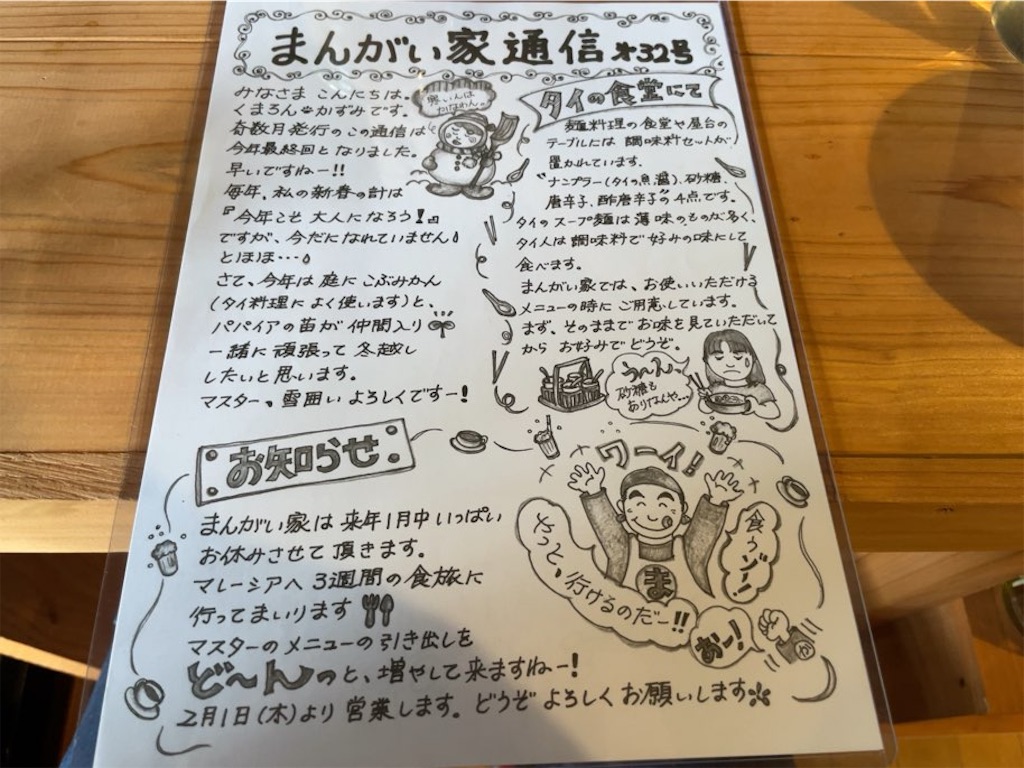 まんがい家通信 オ32号
みなさま こんにちは。
くまろん かずみです。
奇数月発行のこの通信は
今年最終回となりました。
早いですねー!!
毎年、私の新春の計は
『今年こそ 大人になろう!』
ですが、今だになれていません
とほほ・・・
さて、今年は 庭に こぶみかん
(タイ料理に よく使います)と、
パパイアの苗が 仲間入り
一緒に 頑張って 冬越し
したいと 思います。
マスター、雪囲い よろしくですー!
タイの食堂にて
麺料理の食堂や屋台の
テーブルには 調味料セットが
置かれています。
"ナンプラー(タイの魚醤)、砂糖、
唐辛子、酢唐辛子"の4点です。
タイのスープ麺は 薄味のものが多く、
タイ人は 調味料で 好みの味にして
食べます。
まんがい家では、お使いいただける
メニューの時に ご用意しています。
まず、そのままで お味を 見ていただいて
から お好みで どうぞ。
う〜え〜
砂糖も
ありなんや...
お知らせ
まんがい家は 来年1月中 いっぱい
お休みさせて 頂きます。
マレーシアへ 3週間の食旅に
行ってまいります
マスターのメニューの引き出しを
ど〜んっと、増やして 来ますねー!
2月1日(木)より 営業します。どうぞ よろしく お願いします
ワーイ!
やっと、行けるのだー!!
食うゾー!
ま
おー!
か